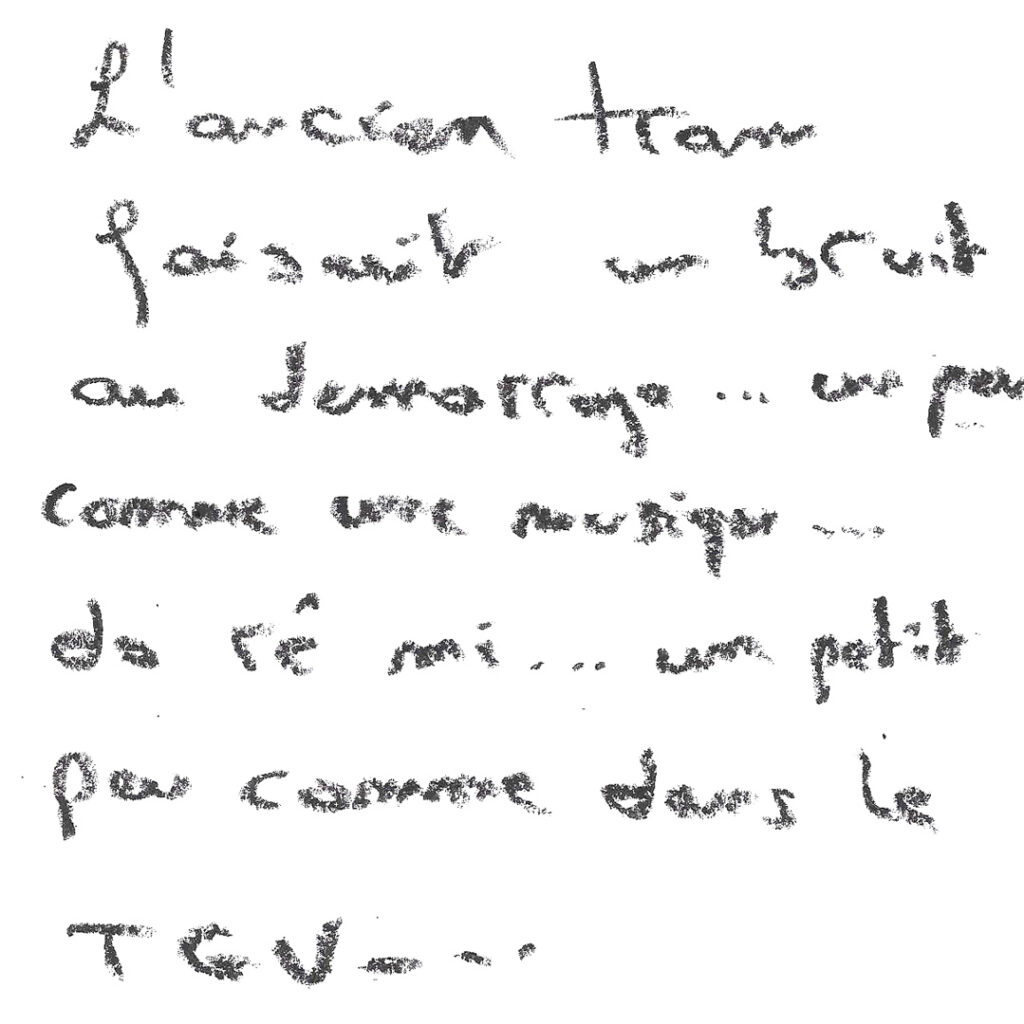 L'ancien tram
faisait un bruit
au demarrage... un peu
comme une musique...
do ré mi... un petit
peu comme dans le
TGV...